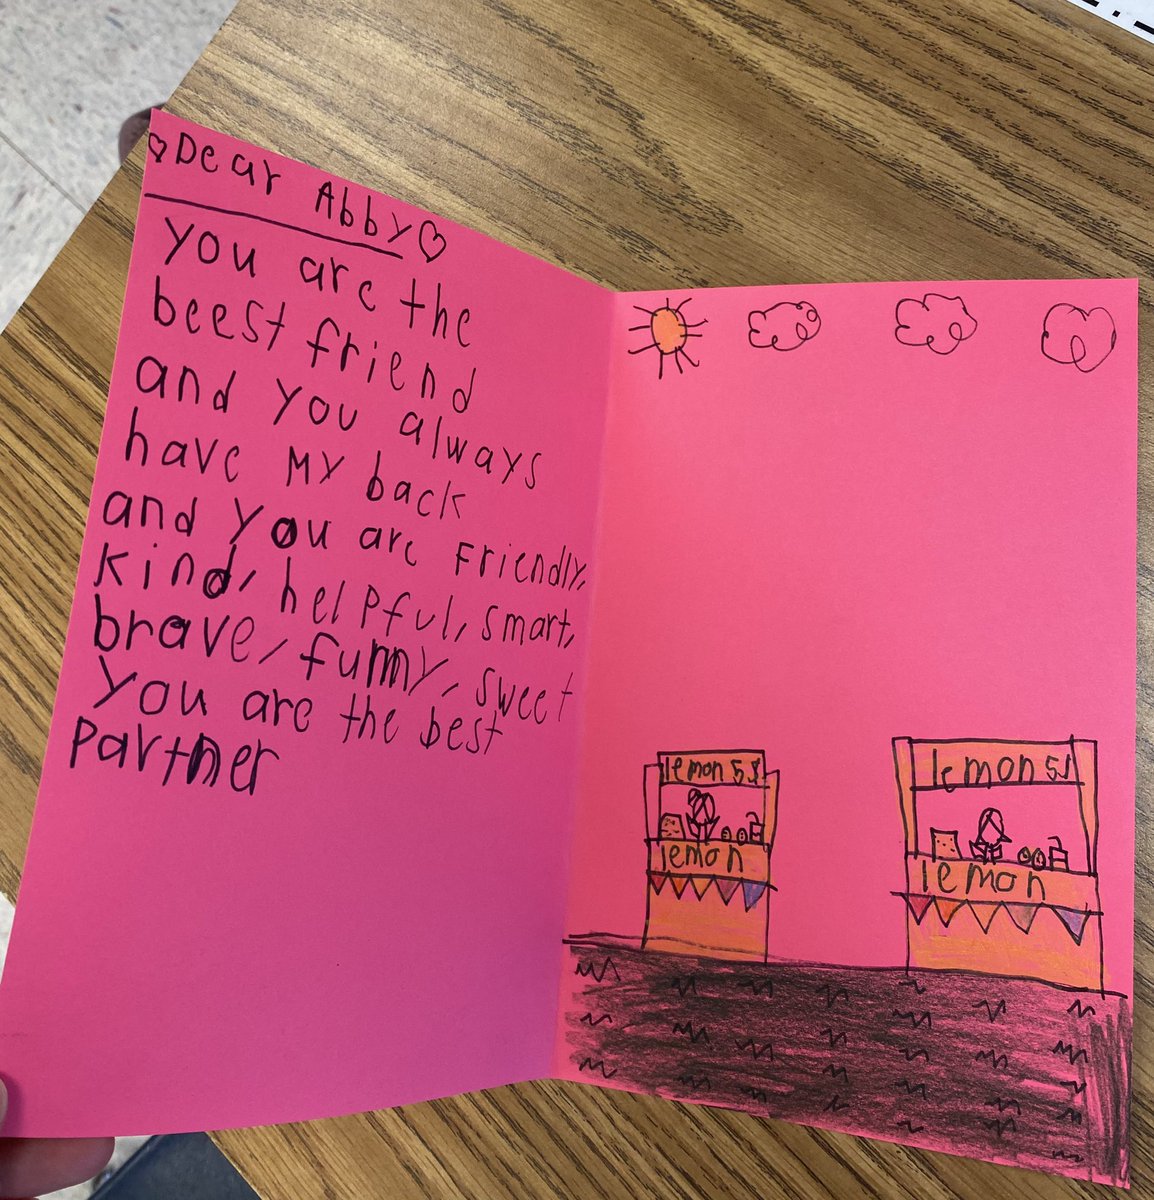 Dear Abby
you are the
beest friend
and you always
have my back
and you are Friendly,
kind, helpful, smart,
brave, funny, sweet
you are the best
partner
lemon 5$
lemon
lemon 5$
lemon